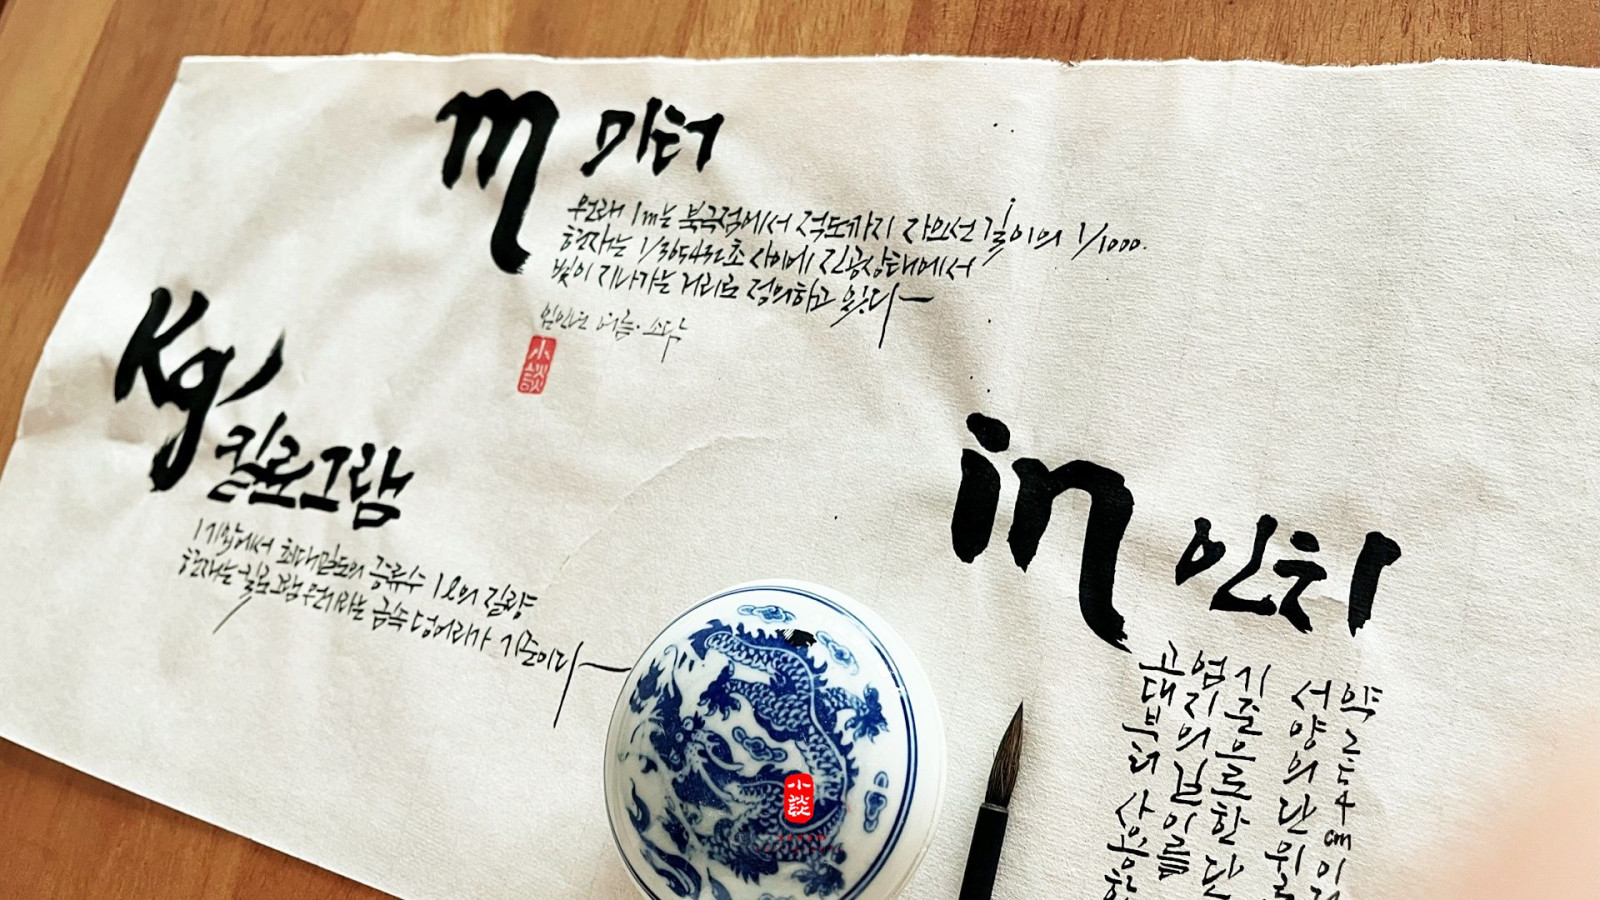 m 미터
원래 1m는 북극점에서 적도까지 자오선 길이의 1/1000.
현재는 1/365432초 사이에 진공상태에서
빛이 지나가는 거리로 정의하고 있다
임인년 여름·소담
小談
Kg 킬로그램
1기압에서 최대밀도의 증류수 1ℓ의 질량
현재는 킬로그램 원기라는 금속 덩어리가 기준이다
in 인치
약 2.54cm이
서양의 단위로
기준으로 한 단
엄지의 길이를
고대부터 사용한
小談